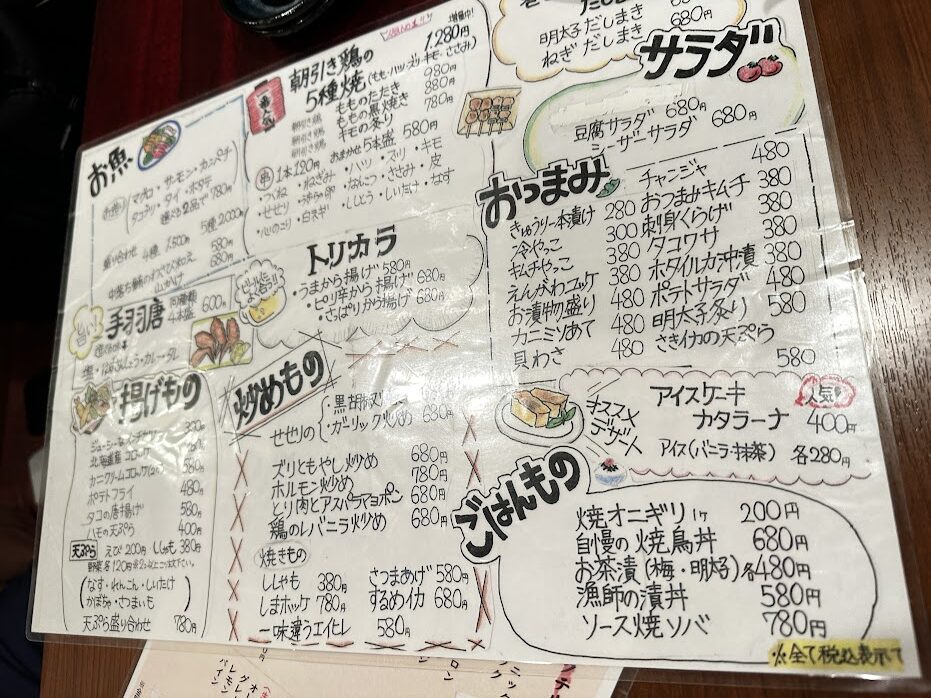 お魚
マグロ・サーモン・カンパチ
780円
5種 2,000
盛り合わせ 4種 1,500
580円
680円
朝引き鶏の
5種焼
増量中!
1,280円
もものたたき 980円
ももの黒焼き 880円
キモの炙り 780円
おまかせ5本盛 580円
串 1本120円
・つくね ・ねぎみ ・ハツ ・ズリ ・キモ
・せせり ・なんこつ ・ささみ ・皮
・心のこり ・白ネギ ・ししとう ・しいたけ ・なす
明太子だしまき 680円
ねぎだしまき 680円
サラダ
豆腐サラダ 680円
シーザーサラダ 680円
おつまみ
きゅうり一本漬け 280
冷やっこ 300
キムチやっこ 380
えんがわユッケ 380
お漬物盛り 480
カニミソあて 480
貝わさ 480
チャンジャ 480
おつまみキムチ 380
刺身くらげ 380
タコワサ 380
ホタイルカ沖漬 380
ポテトサラダ 480
明太子炙り 580
さきイカの天ぷら
580
トリカラ
・うまから揚げ 580円
・ピリ辛から揚げ 680円
・さっぱりから揚げ 680円
旨い!
手羽唐
4本盛 600円
揚げもの
ポテトフライ 480円
タコの唐揚げ 580円
ハモの天ぷら 400円
天ぷら えび 200円 ししゃも 380円
野菜 各120円
なす・れんこん・しいたけ
かぼちゃ・さつまいも
天ぷら盛り合わせ 780円
炒めもの
せせりの
・ガーリック炒め 680円
ズリともやし炒め 680円
ホルモン炒め 780円
とり肉とアスパラマヨポン 680円
鶏のレバニラ炒め 680円
焼きもの
ししゃも 380円 さつまあげ 580円
しまホッケ 780円 するめイカ 680円
一味違うエイヒレ 580円
オススメ
デザート
アイスケーキ
カタラーナ
人気
400円
アイス(バニラ・抹茶) 各280円
ごはんもの
焼オニギリ 1ケ 200円
自慢の焼鳥丼 680円
お茶漬(梅・明太子)各480円
漁師の漬丼 580円
ソース焼ソバ 780円
※全て税込表示て